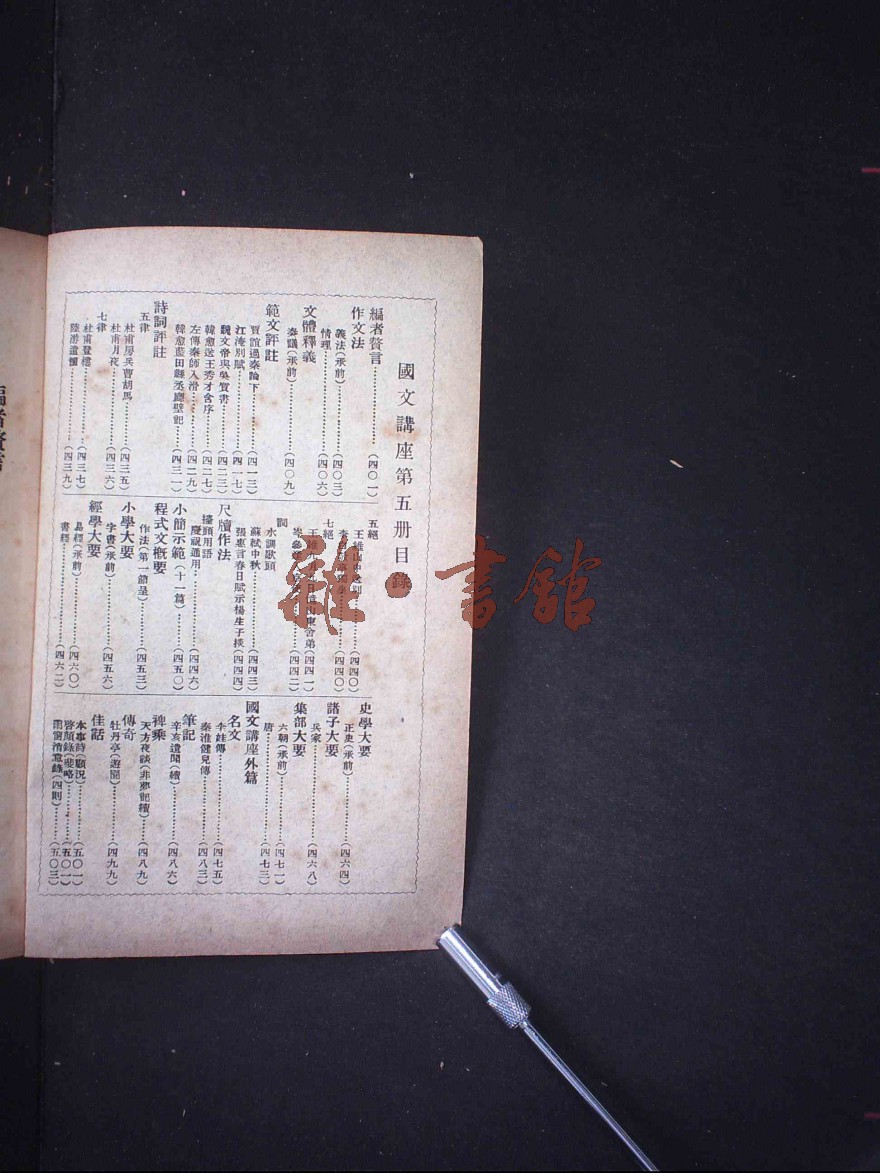 國文講座第五册目錄
編者贅言…………(四〇一)
作文法
義法(承前)…………(四〇三)
情理…………(四〇六)
文體釋義
奏議(承前)…………(四〇九)
範文評註
賈誼過秦論下…………(四一三)
江淹別賦…………(四一七)
魏文帝與吳質書…………(四二三)
韓愈送王秀才含序…………(四二七)
左傳秦師入滑…………(四二九)
韓愈藍田縣丞廳壁記…………(四三一)
詩詞評註
五律
杜甫房兵曹胡馬…………(四三五)
杜甫月夜…………(四三六)
七律
杜甫登樓…………(四三七)
陸游遣懷…………(四三九)
五絕
王維山中送別…………(四四〇)
(四四〇)
七絕
王維九月九日憶山東舍弟(四四一)
岑參…………(四四二)
詞
水調歌頭
蘇軾中秋…………(四四三)
張惠言春日賦示楊生子掞(四四四)
尺牘作法
擡頭用語
慶祝通用…………(四四六)
小簡示範(十一篇)…………(四五〇)
程式文概要
作法(第一節呈)…………(四五三)
小學大要
字書(承前)…………(四五六)
經學大要
易經(承前)…………(四六〇)
書經…………(四六二)
史學大要
正史(承前)…………(四六四)
諸子大要
兵家…………(四六八)
集部大要
六朝(承前)…………(四七一)
唐…………(四七三)
國文講座外篇
名文
李娃傳…………(四七五)
秦淮健兒傳…………(四八三)
筆記
辛亥遺聞(續)…………(四八六)
稗乘
天方夜談(非夢記續)…………(四八九)
傳奇
牡丹亭(遊園)…………(四九九)
佳話
本事詩(顧況)…………(五〇一)
啓顏錄(裴略)…………(五〇一)
雨窗消意錄(四則)…………(五〇三)
雜·書館
編者贅言